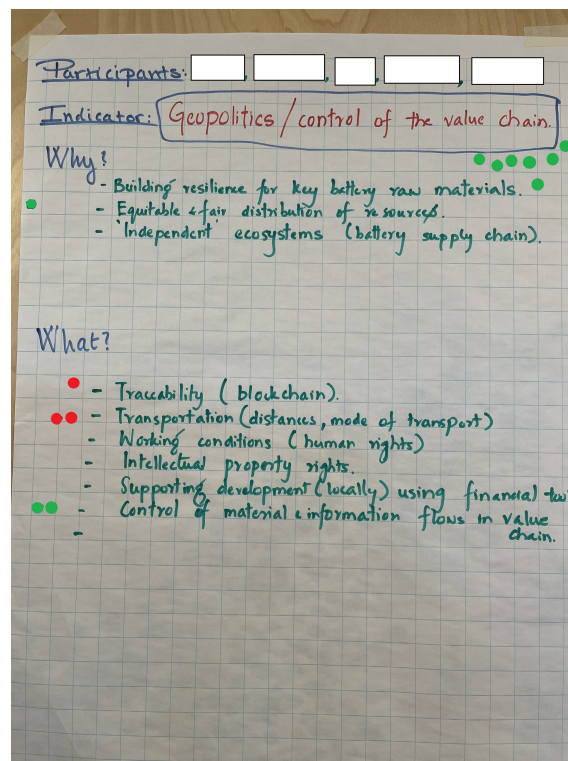 Participants:
Indicator: Geopolitics / control of the value chain.
Why?
- Building resilience for key battery raw materials.
- Equitable & fair distribution of resources.
- 'Independent' ecosystems (battery supply chain).
What?
- Traceability (blockchain).
- Transportation (distances, mode of transport)
- Working conditions (human rights)
- Intellectual property rights.
- Supporting development (locally) using financial
- Control of material & information flows in value
chain.
-